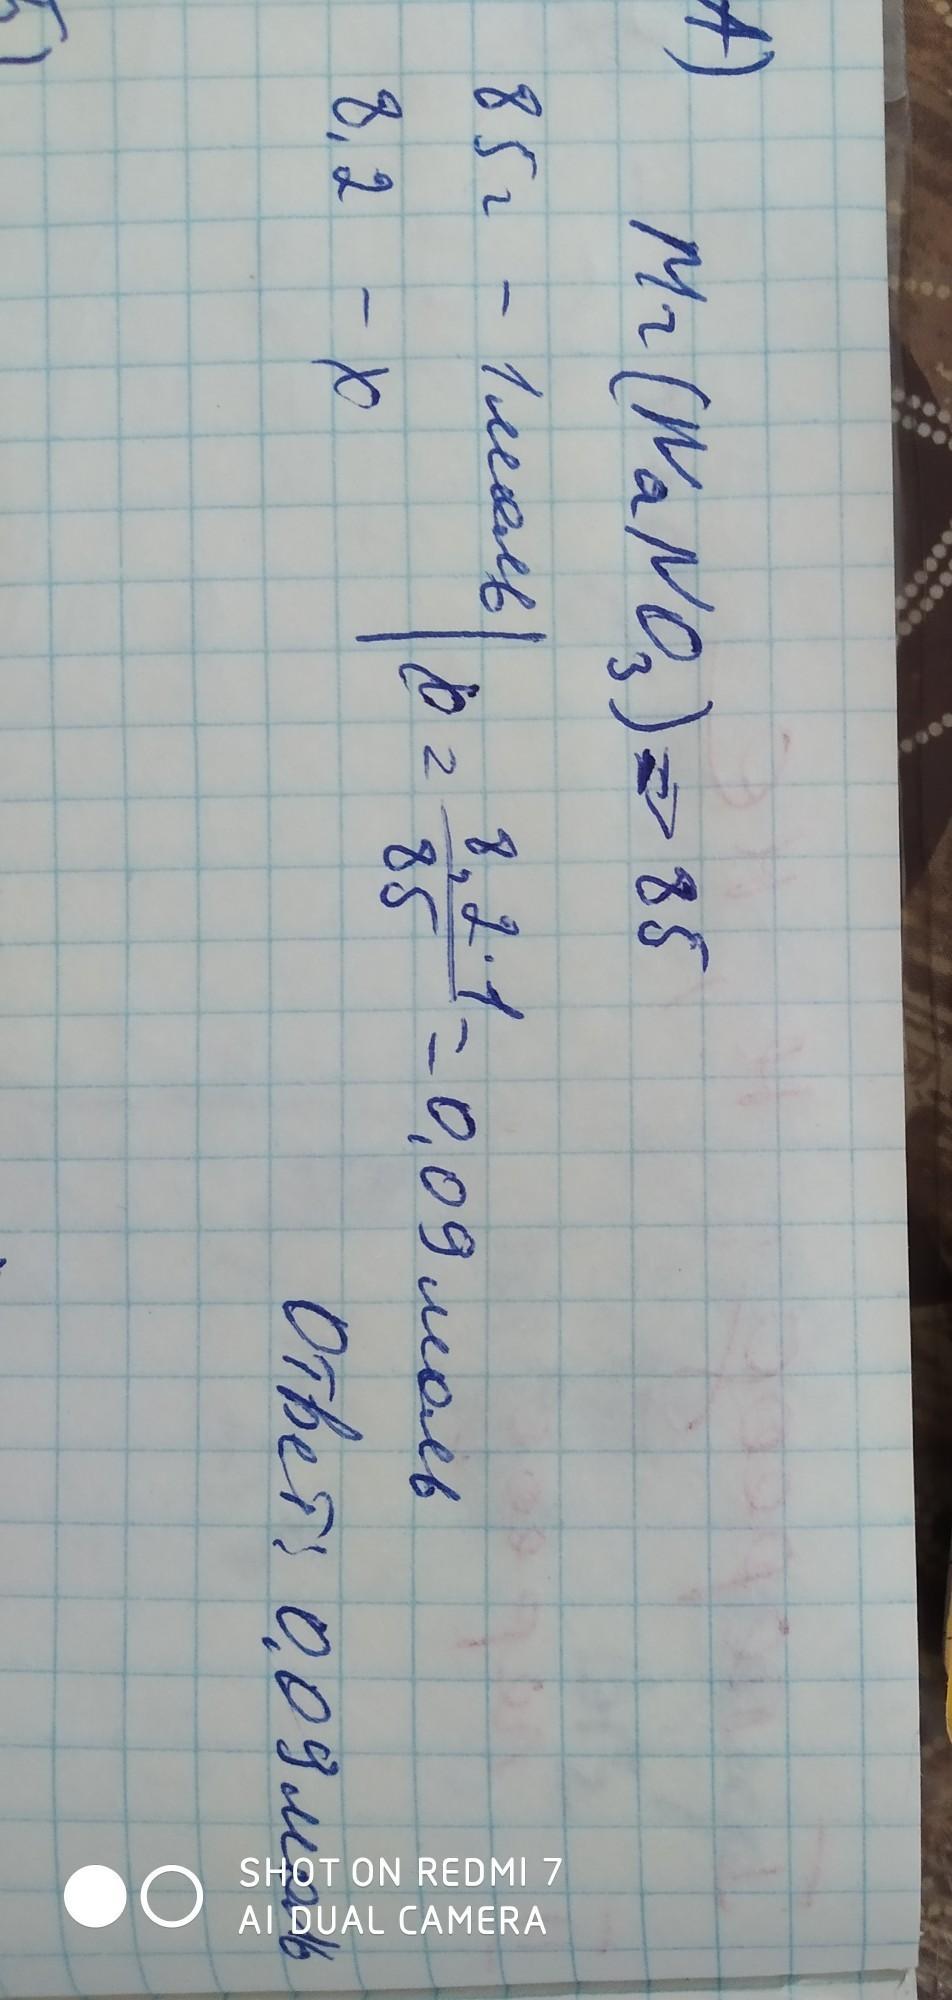 А)
Mr(NaNO₃) => 85
85г - 1моль
8,2 - x
x = 8,2·1/85 = 0,09 моль
Ответ: 0,09 моль
Б)
SHOT ON REDMI 7
AI DUAL CAMERA